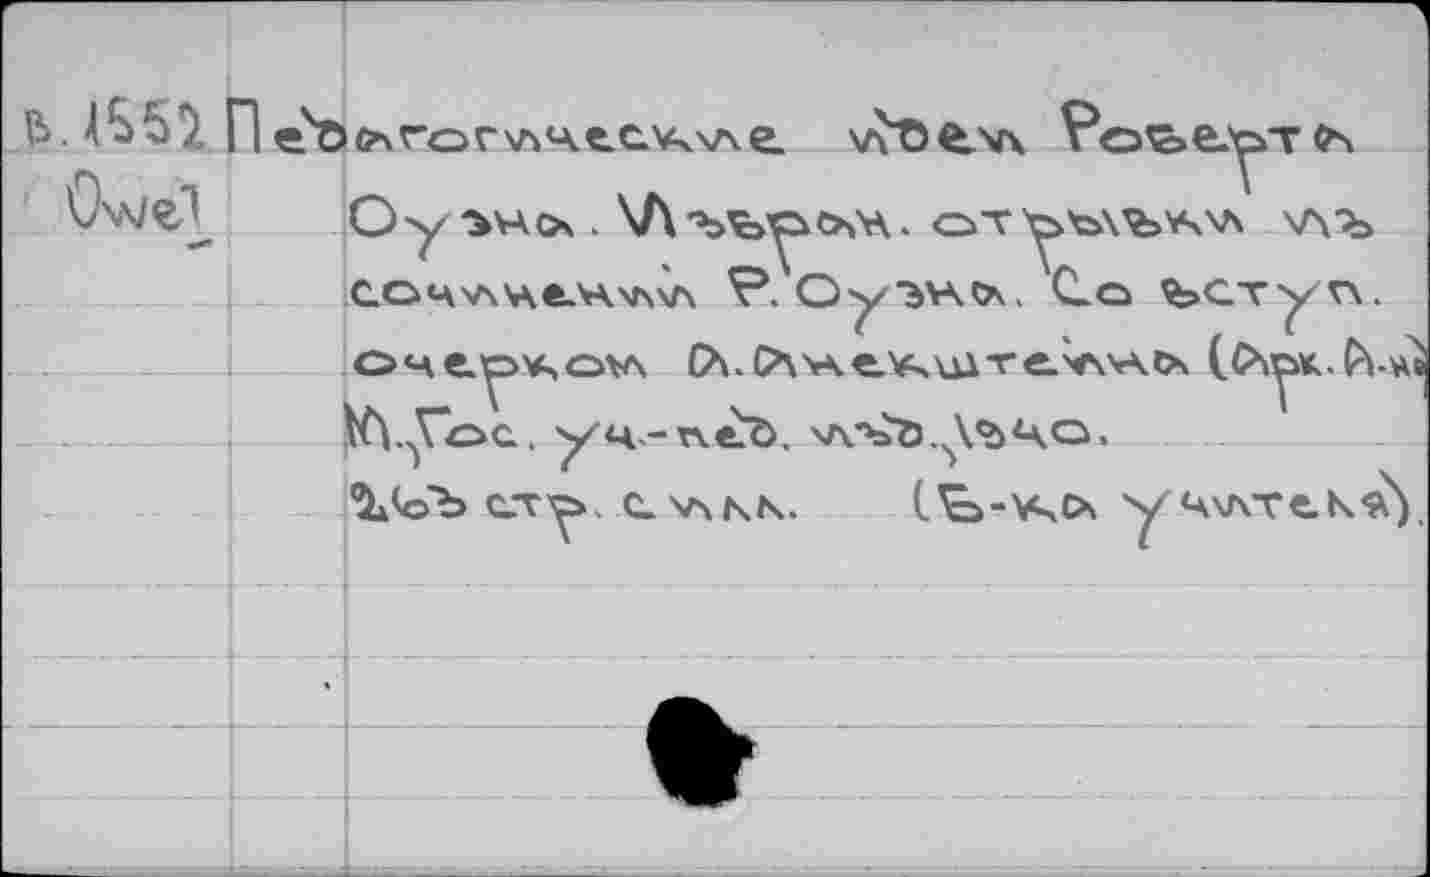 В.1552 Педагогические идеи Роберта
Owel Оуэна. Избран. отрывки из
сочинении Р. Оуэна. Со вступ.
очерком А. Анекштейна (Арк. И-ч)
М., Гос. уч.-пед. изд., 1940.
263 стр. с илл. (Б-ка учителя).